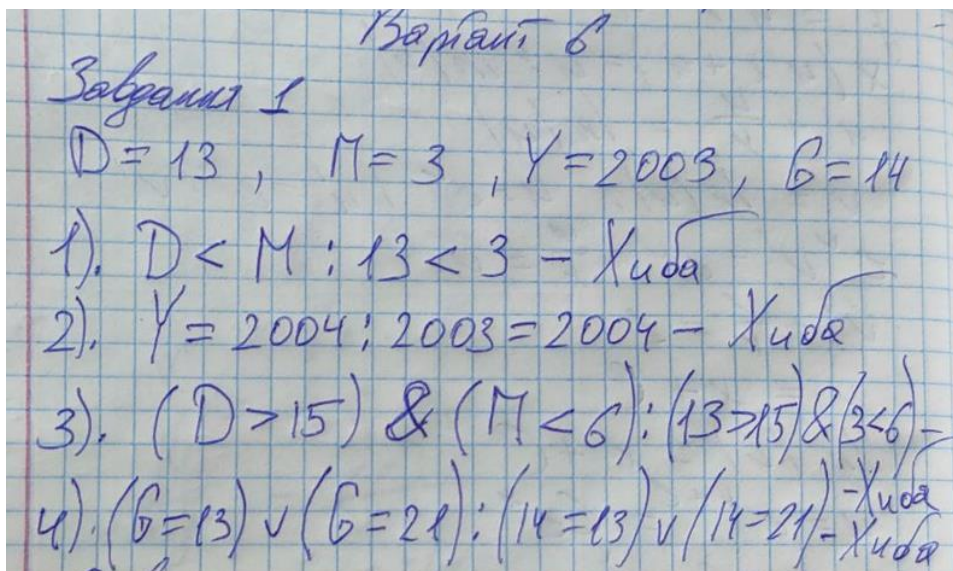 Варіант 6
Завдання 1
D = 13 , М = 3 , Y = 2003 , G = 14
1). D < М : 13 < 3 – Хиба
2). Y = 2004 : 2003 = 2004 – Хиба
3). (D > 15) & (М < 6) : (13 > 15) & (3 < 6) –
– Хиба
4). (G = 13) v (G = 21) : (14 = 13) v (14 = 21) – Хиба